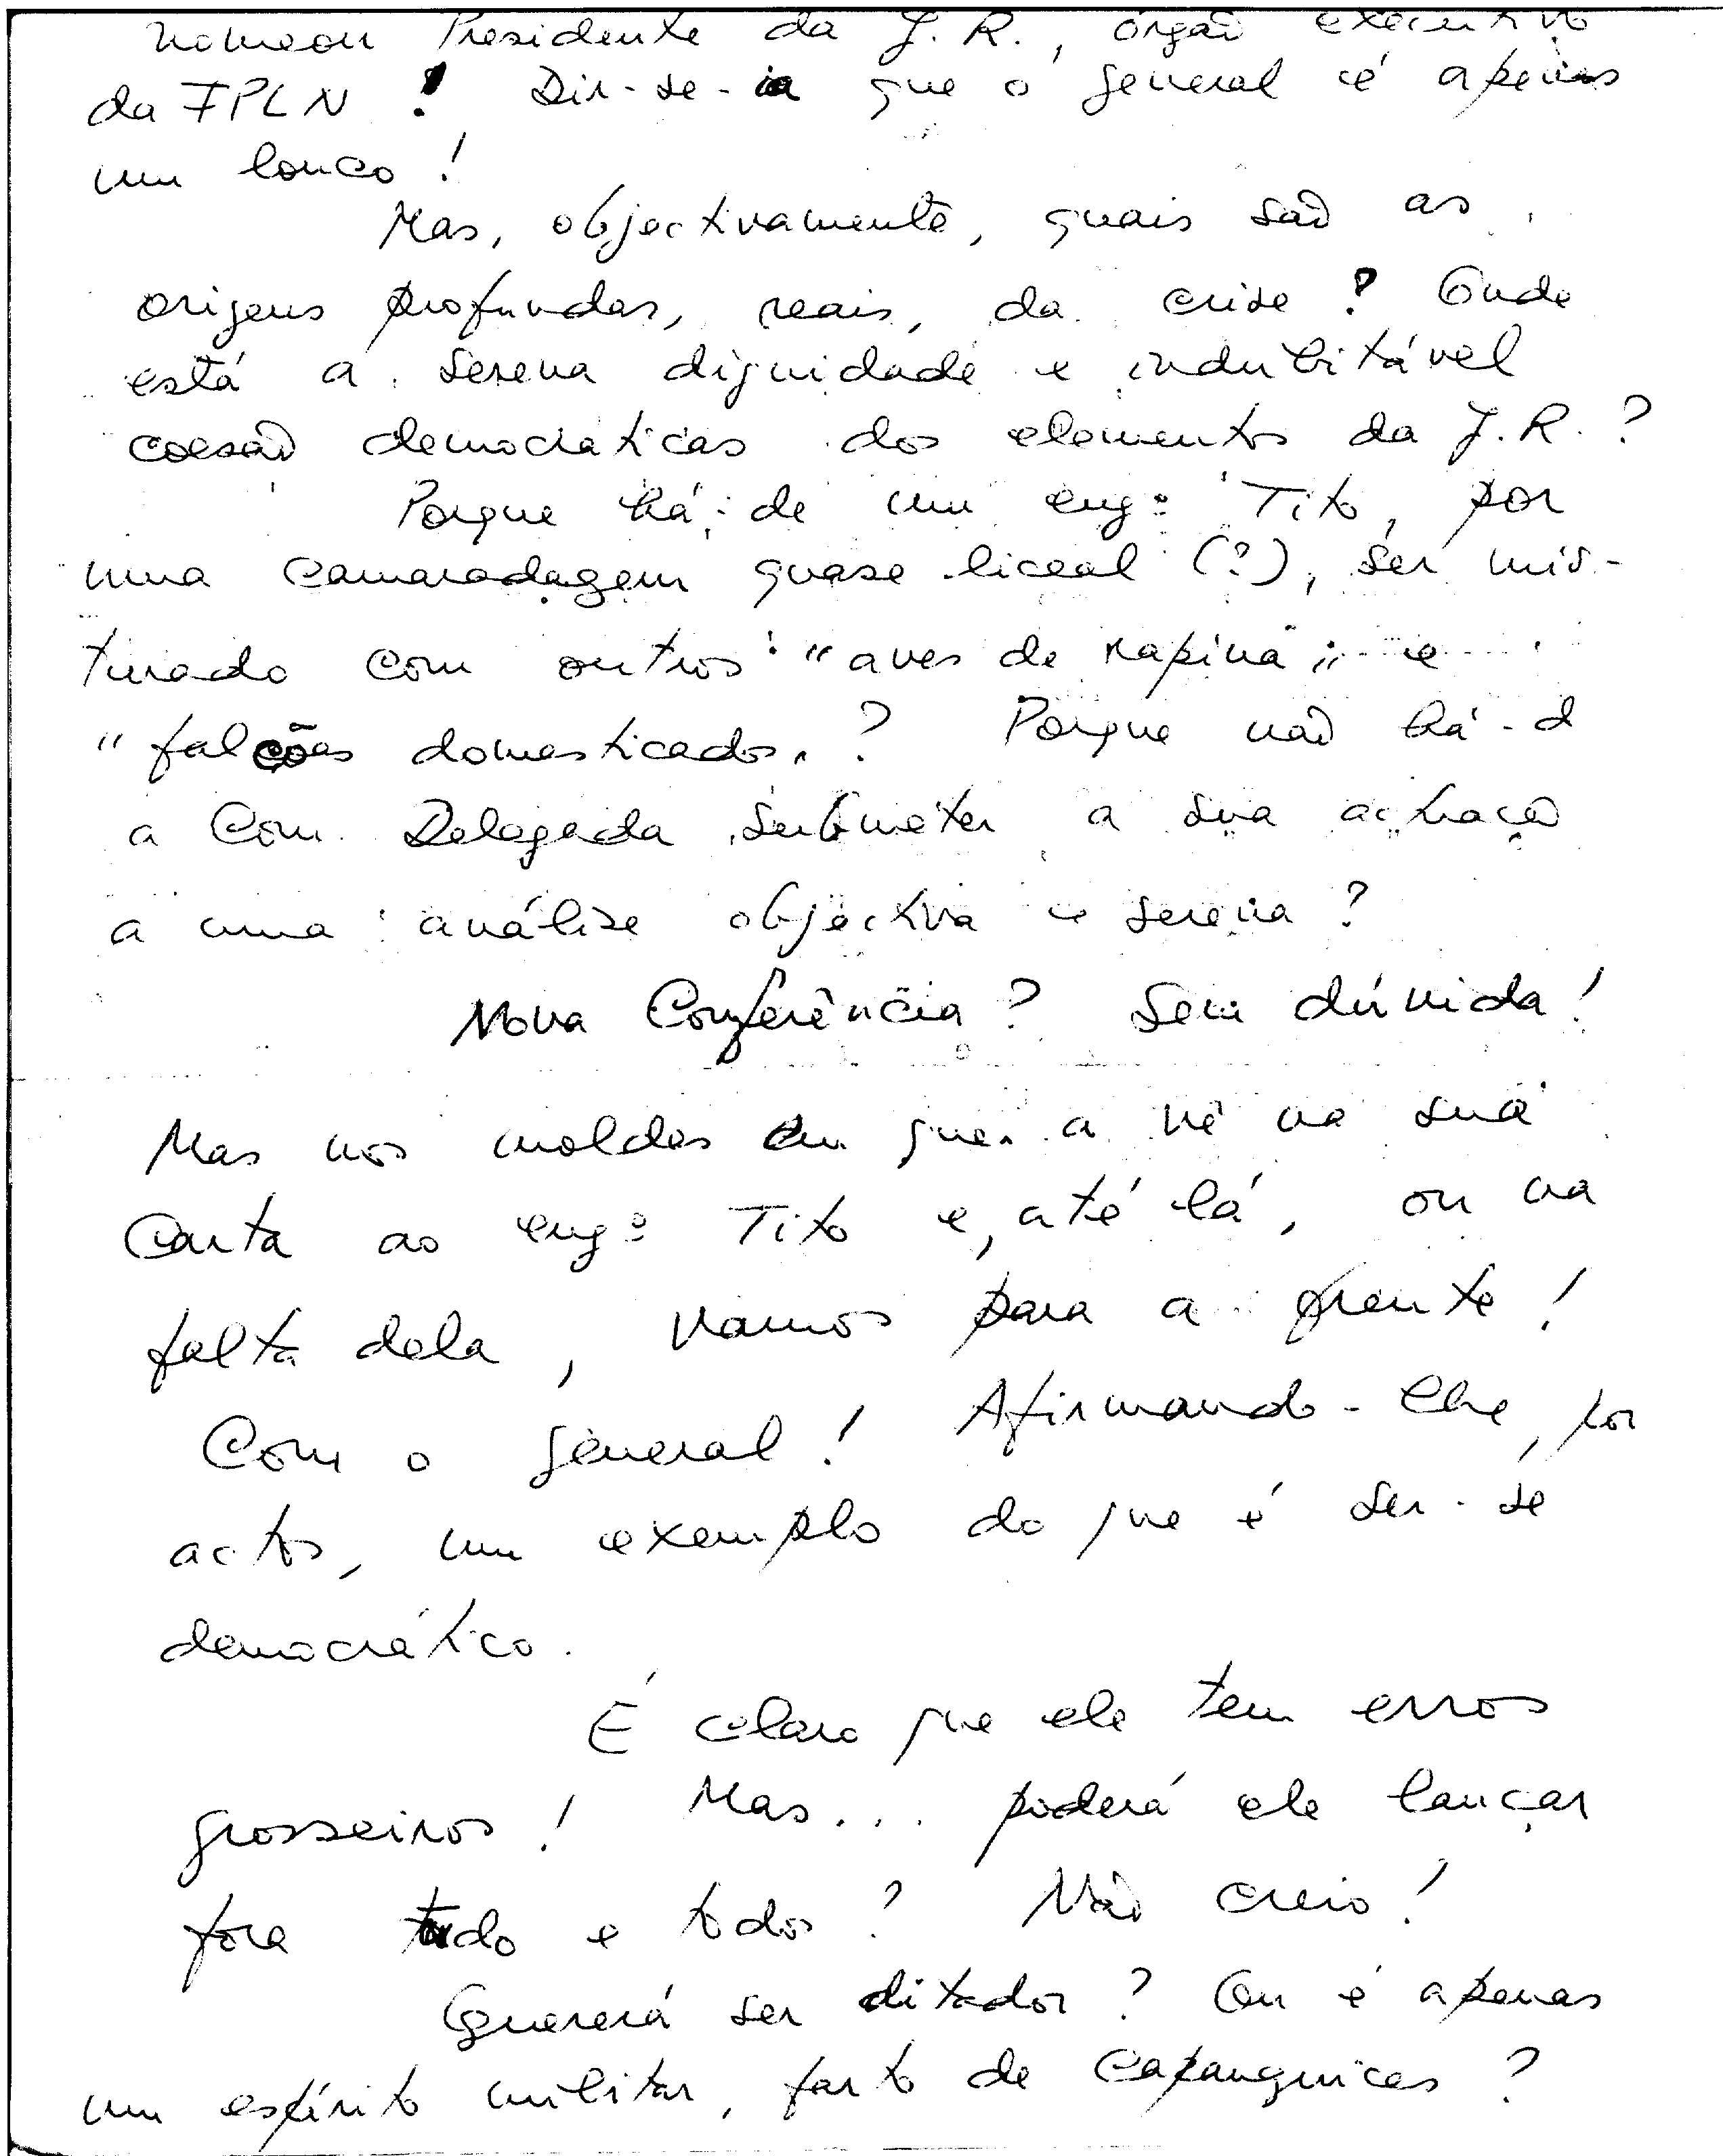 nomeou Presidente da J.R., órgaõ executivo
da FPLN! Dir-se-ia que o general é apenas
um louco!
Mas, objectivamente, quais saõ as
origens profundas, reais, da crise? Onde
está a serena dignidade e indubitável
coesaõ democraticas dos elementos da J.R.?
Porque há-de um engº Tito, por
uma camaradagem quase liceal (?), ser mis-
turado com outros "aves de rapina" e
"falcões domesticados"? Porque naõ há-d
a Com. Delegada submeter a sua actuaçaõ
a uma análise objectiva e serena?
Nova Conferência? Sem dúvida!
Mas nos moldes em que a vê na sua
carta ao engº Tito e, até lá, ou na
falta dela, vamos para a frente!
Com o general! Afirmando-lhe, por
actos, um exemplo do que é ser-se
democrático.
É claro que ele tem erros
grosseiros! Mas... poderá ele lançar
fora tudo e todos? Naõ creio!
Quererá ser ditador? Ou é apenas
um espírito militar, farto de capanguices?